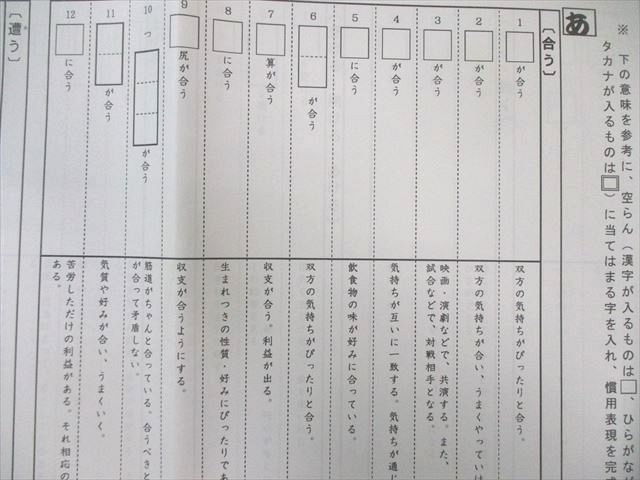 ※ 下の意味を参考に、空らん（漢字が入るものは□、ひらがな
タカナが入るものは□）に当てはまる字を入れ、慣用表現を完
あ
〔合う〕
1 □が合う
双方の気持ちがぴったりと合う。
2 □が合う
双方の気持ちが合い、うまくやってい
3 □が合う
映画・演劇などで、共演する。また、
試合などで、対戦相手となる。
4 □が合う
気持ちが互いに一致する。気持ちが通じ
5 □に合う
飲食物の味が好みに合っている。
6 □が合う
双方の気持ちがぴったりと合う。
7 □算が合う
収支が合う。利益が出る。
8 □に合う
生まれつきの性質・好みにぴったりであ
9 □尻が合う
収支が合うようにする。
10 つ□が合う
筋道がちゃんと合っている。合うべきと
が合って矛盾しない。
11 □が合う
気質や好みが合い、うまくいく。
12 □に合う
苦労しただけの利益がある。それ相応の
ある。
〔遭う〕